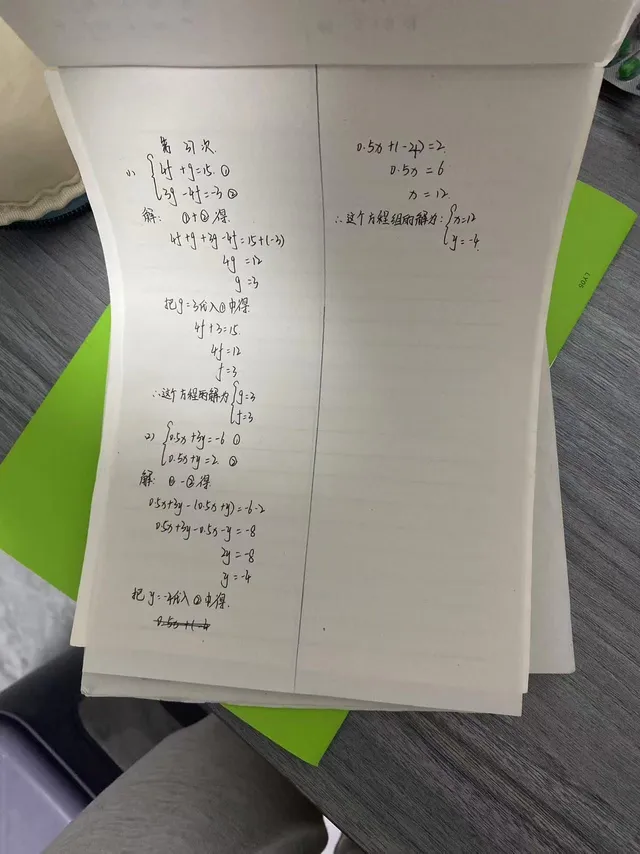 第 31 次
1) { 4f + g = 15. ①
3g - 4f = -3 ②
解: ①+②得
4f + g + 3g - 4f = 15 + (-3)
4g = 12
g = 3
把 g = 3代入①中得
4f + 3 = 15.
4f = 12
f = 3
∴这个方程的解为 { g = 3
f = 3
2) { 0.5x + 3y = -6 ①
0.5x + y = 2. ②
解: ①-②得
0.5x + 3y - (0.5x + y) = -6 - 2
0.5x + 3y - 0.5x - y = -8
2y = -8
y = -4
把 y = -4代入②中得.
0.5x + (-4
0.5x + (-4) = 2.
0.5x = 6
x = 12.
∴这个方程组的解为: { x = 12
y = -4